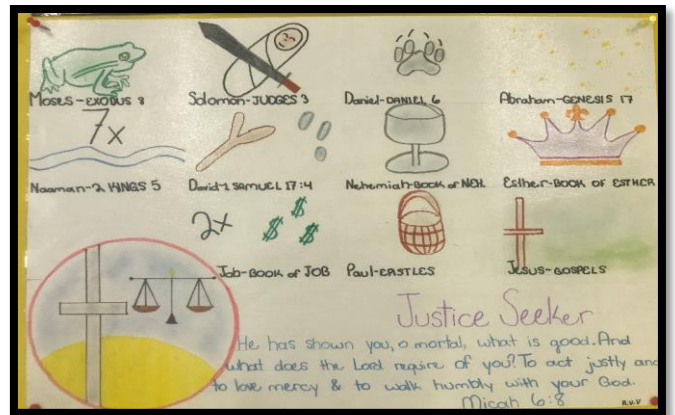 Moses-EXODUS 8
Solomon-JUDGES 3
Daniel-DANIEL 6
Abraham-GENESIS 17
7x
Naaman-2 KINGS 5
David-1 SAMUEL 17:4
Nehemiah-BOOK of NEH.
Esther-BOOK OF ESTHER
2x $ $ $
Job-BOOK of JOB
Paul-EPISTLES
Jesus-GOSPELS
Justice Seeker
He has shown you, o mortal, what is good. And
what does the Lord require of you? To act justly and
to love mercy & to walk humbly with your God.
Micah 6:8
R.V.V